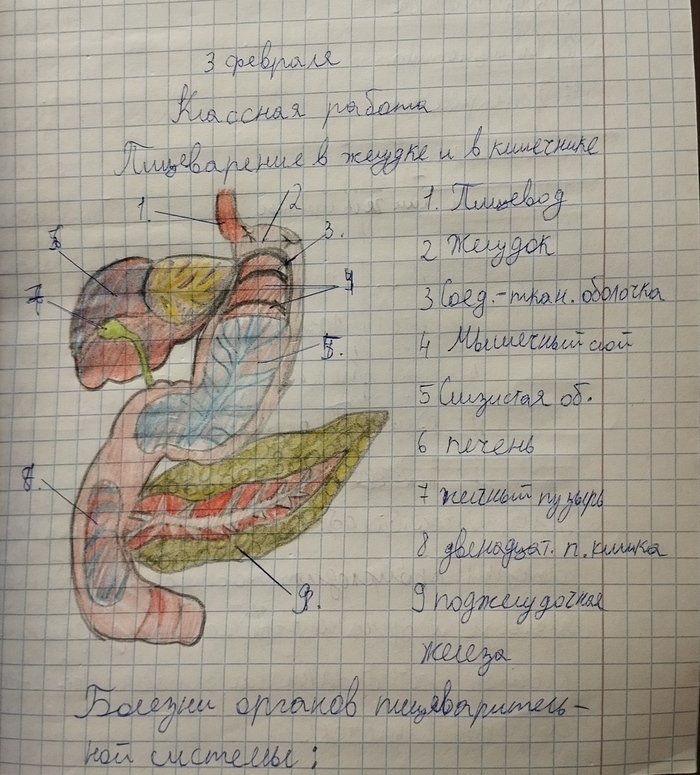 3 февраля
Классная работа
Пищеварение в желудке и в кишечнике
1.
2
3.
7
4
5.
8.
9.
1. Пищевод
2 Желудок
3 Соед.-ткан. оболочка
4 Мышечный слой
5 Слизистая об.
6 печень
7 желчный пузырь
8 двенадцат. п. кишка
9 поджелудочная
железа
Болезни органов пищеваритель-
ной системы: